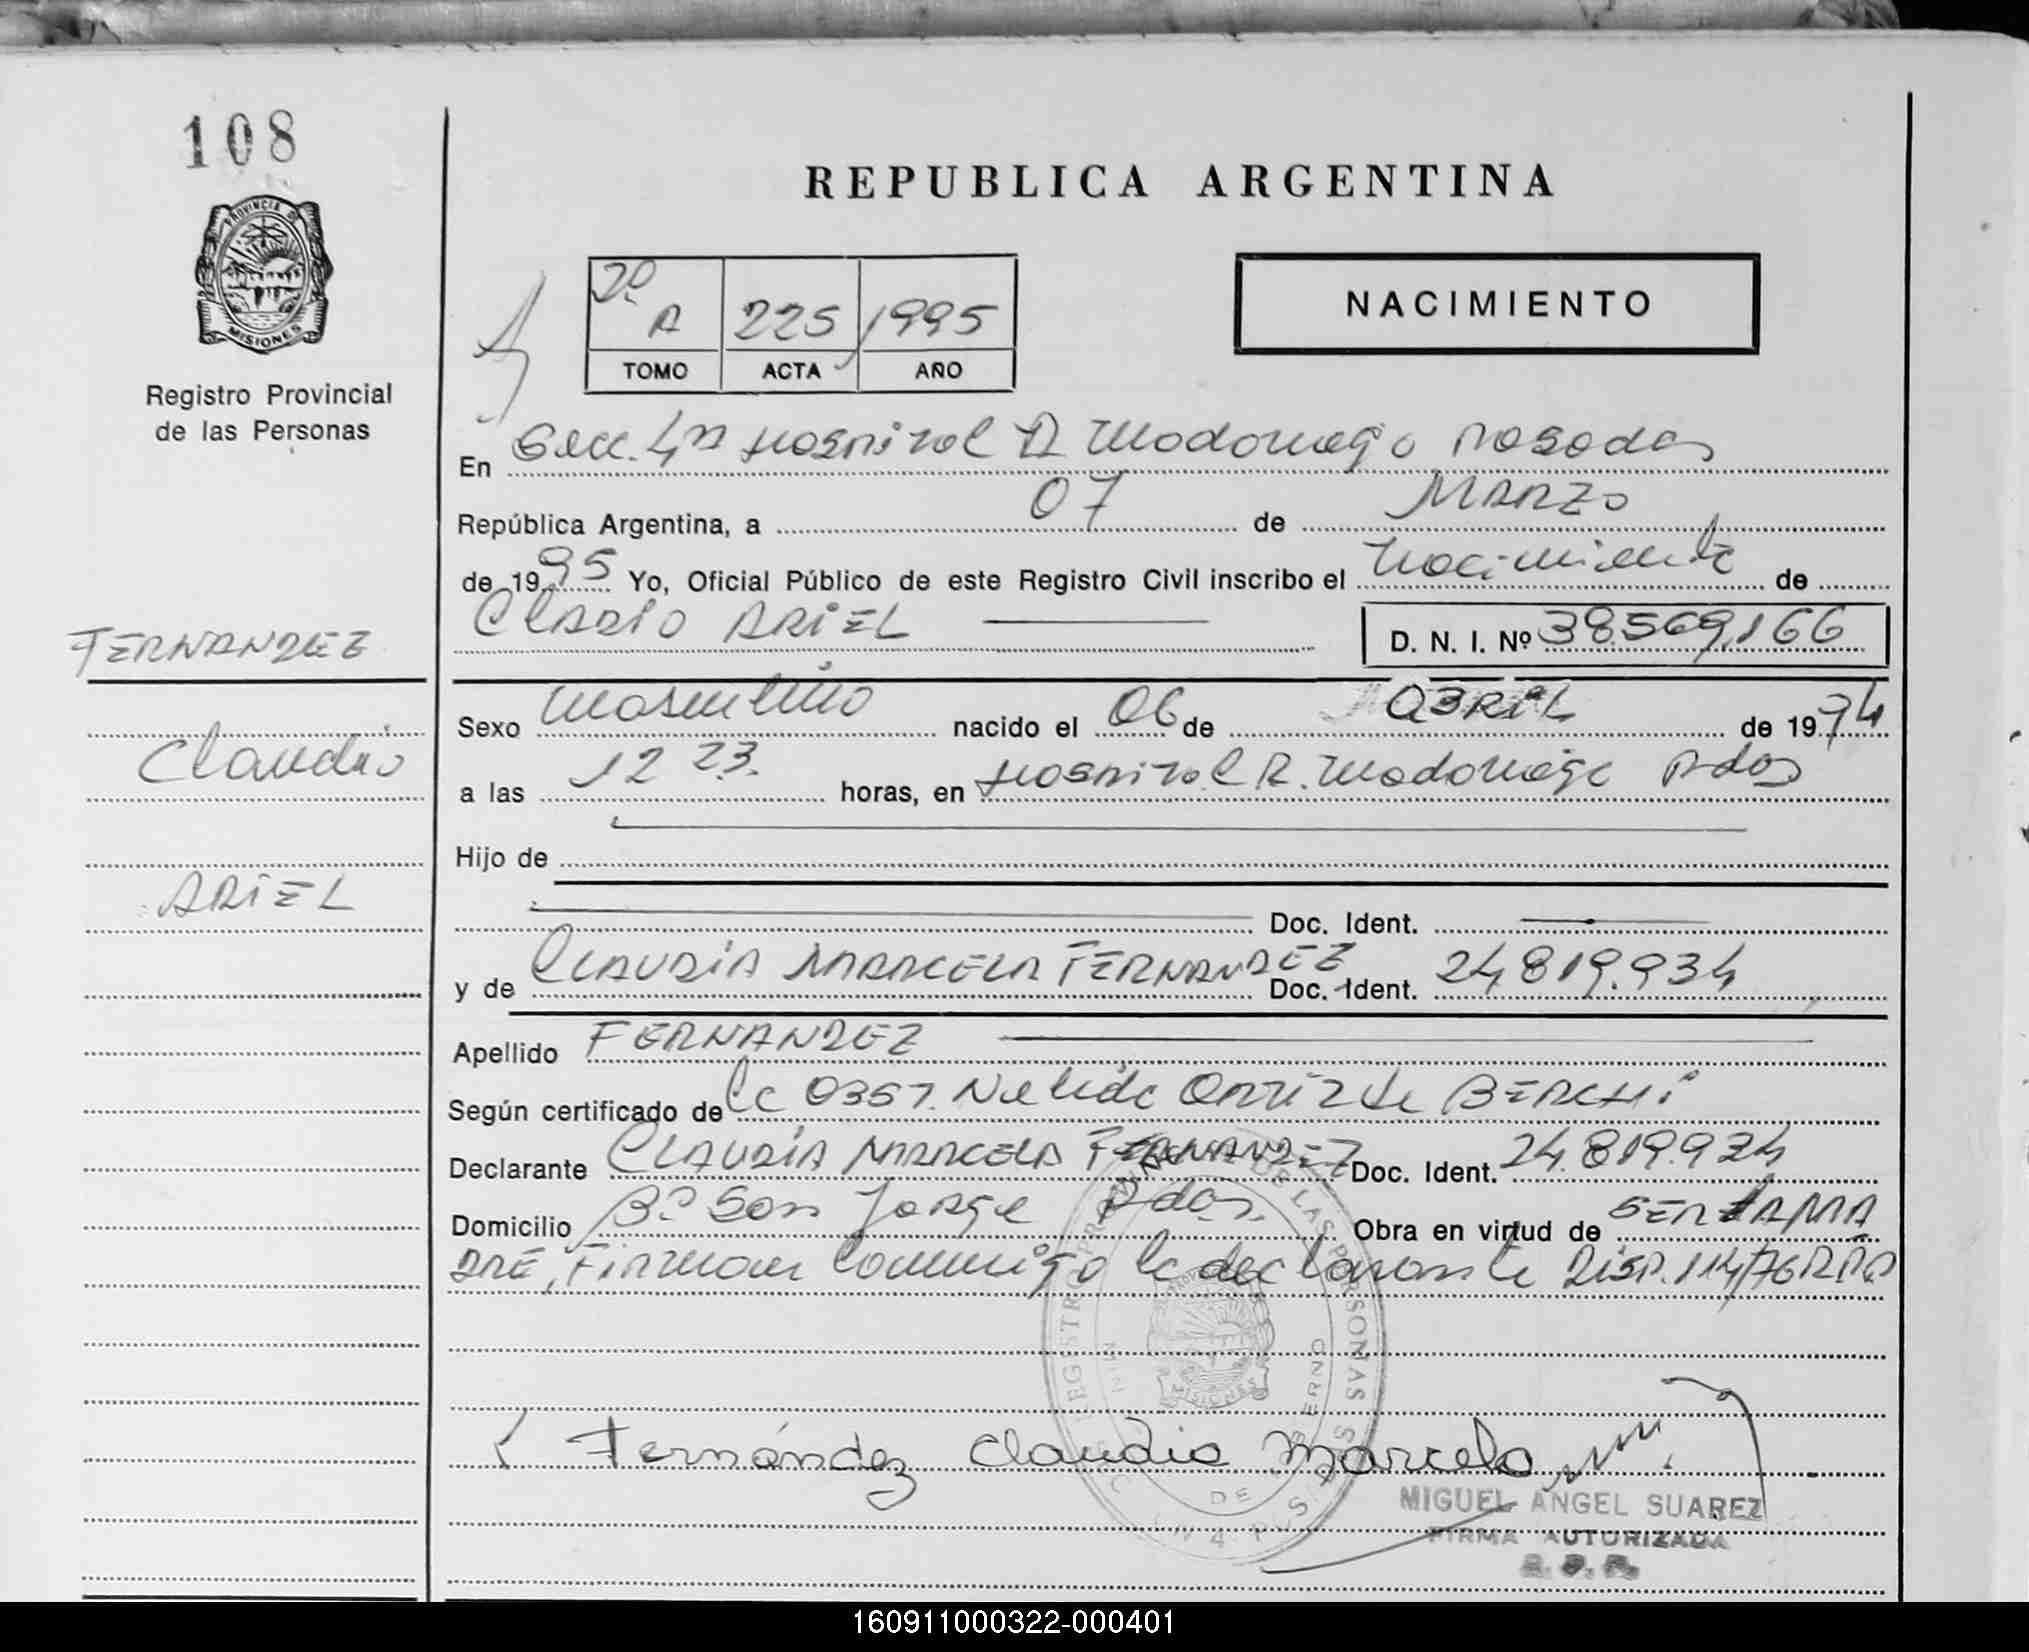 108
REPUBLICA ARGENTINA
PROVINCIA DE
MISIONES
Registro Provincial
de las Personas
2º A 225 1995
TOMO ACTA AÑO
NACIMIENTO
En Secc. 4ta Hospital R Madariaga Posadas
República Argentina, a 07 de MARZO
de 1995 Yo, Oficial Público de este Registro Civil inscribo el nacimiento de
FERNANDEZ
CLADIO ARIEL D. N. I. Nº 38.569.166
Claudio
ARIEL
Sexo masculino nacido el 06 de ABRIL de 1994
a las 12 23. horas, en Hospital R. Madariaga Pdas
Hijo de
Doc. Ident.
y de CLAUDIA MARCELA FERNANDEZ Doc. Ident. 24.819.934
Apellido FERNANDEZ
Según certificado de Lc 0357. Nelida Ortiz de BERCHI
Declarante CLAUDIA MARCELA FERNANDEZ Doc. Ident. 24.819.934
Domicilio Bº San Jorge Pdas. Obra en virtud de SER LA MA
DRE, Firman conmigo la declarante DISP. 114/76 RPP
REGISTRO PROVINCIAL DE LAS PERSONAS
MISIONES
Fernández Claudia Marcela
MIGUEL ANGEL SUAREZ
FIRMA AUTORIZADA
R. P. P.
160911000322-000401